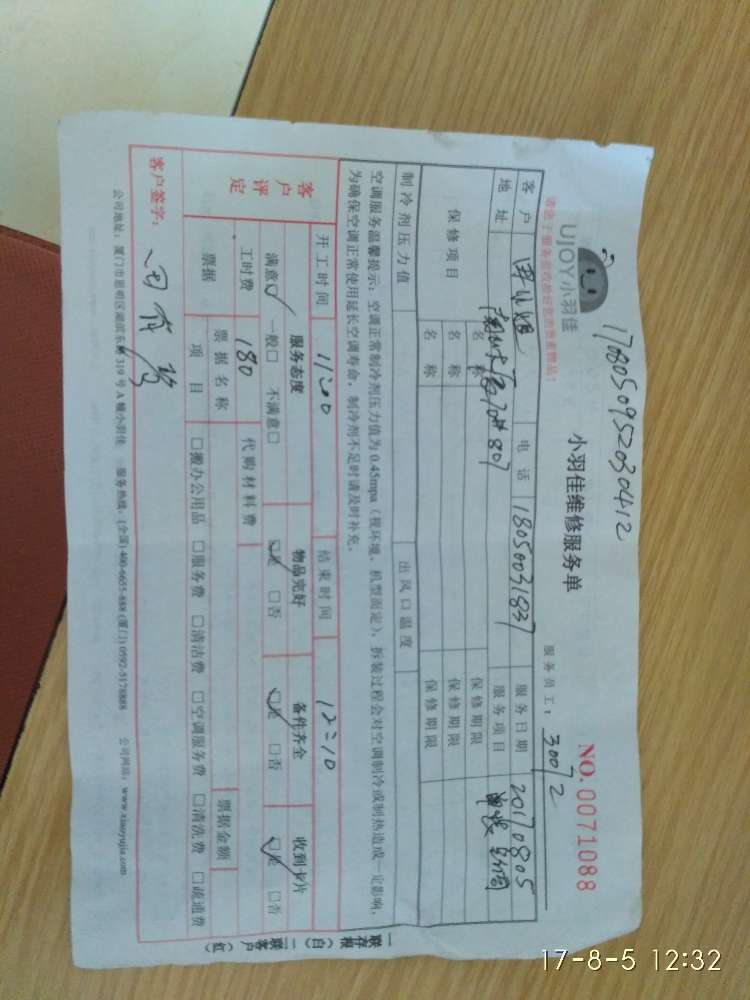 1708050952030412
UJOY小羽佳
小羽佳维修服务单
NO.0071088
请您于服务前收拾好您的贵重物品!
服务员工: 30072
客户 电话 18050031837 服务日期 20170805
地址 70# 807 服务项目
保修项目 名称 保修期限
名称 保修期限
名称 保修期限
制冷剂压力值 出风口温度
空调服务温馨提示: 空调正常制冷剂压力值为0.45mpa(视环境、机型而定), 拆装过程会对空调制冷或制热造成一定影响,
为确保空调正常使用延长空调寿命, 制冷剂不足时请及时补充。
开工时间 11:20 结束时间 12:10
客户评定 服务态度 物品完好 备件齐全 收到卡片
满意☑ 一般□ 不满意□ ☑是 □否 ☑是 □否 ☑是 □否
工时费 180 代购材料费
票据 票据名称 票据金额
项目 □搬办公用品 □服务费 □清洁费 □空调服务费 □清洗费 □疏通费
客户签字:
公司地址: 厦门市思明区湖滨东路319号A幢小羽佳 服务热线: (全国) 400-6655-888 (厦门) 0592-5178888 公司网站: www.xiaoyujia.com
一联存根(白) 二联客户(红)
17-8-5 12:32